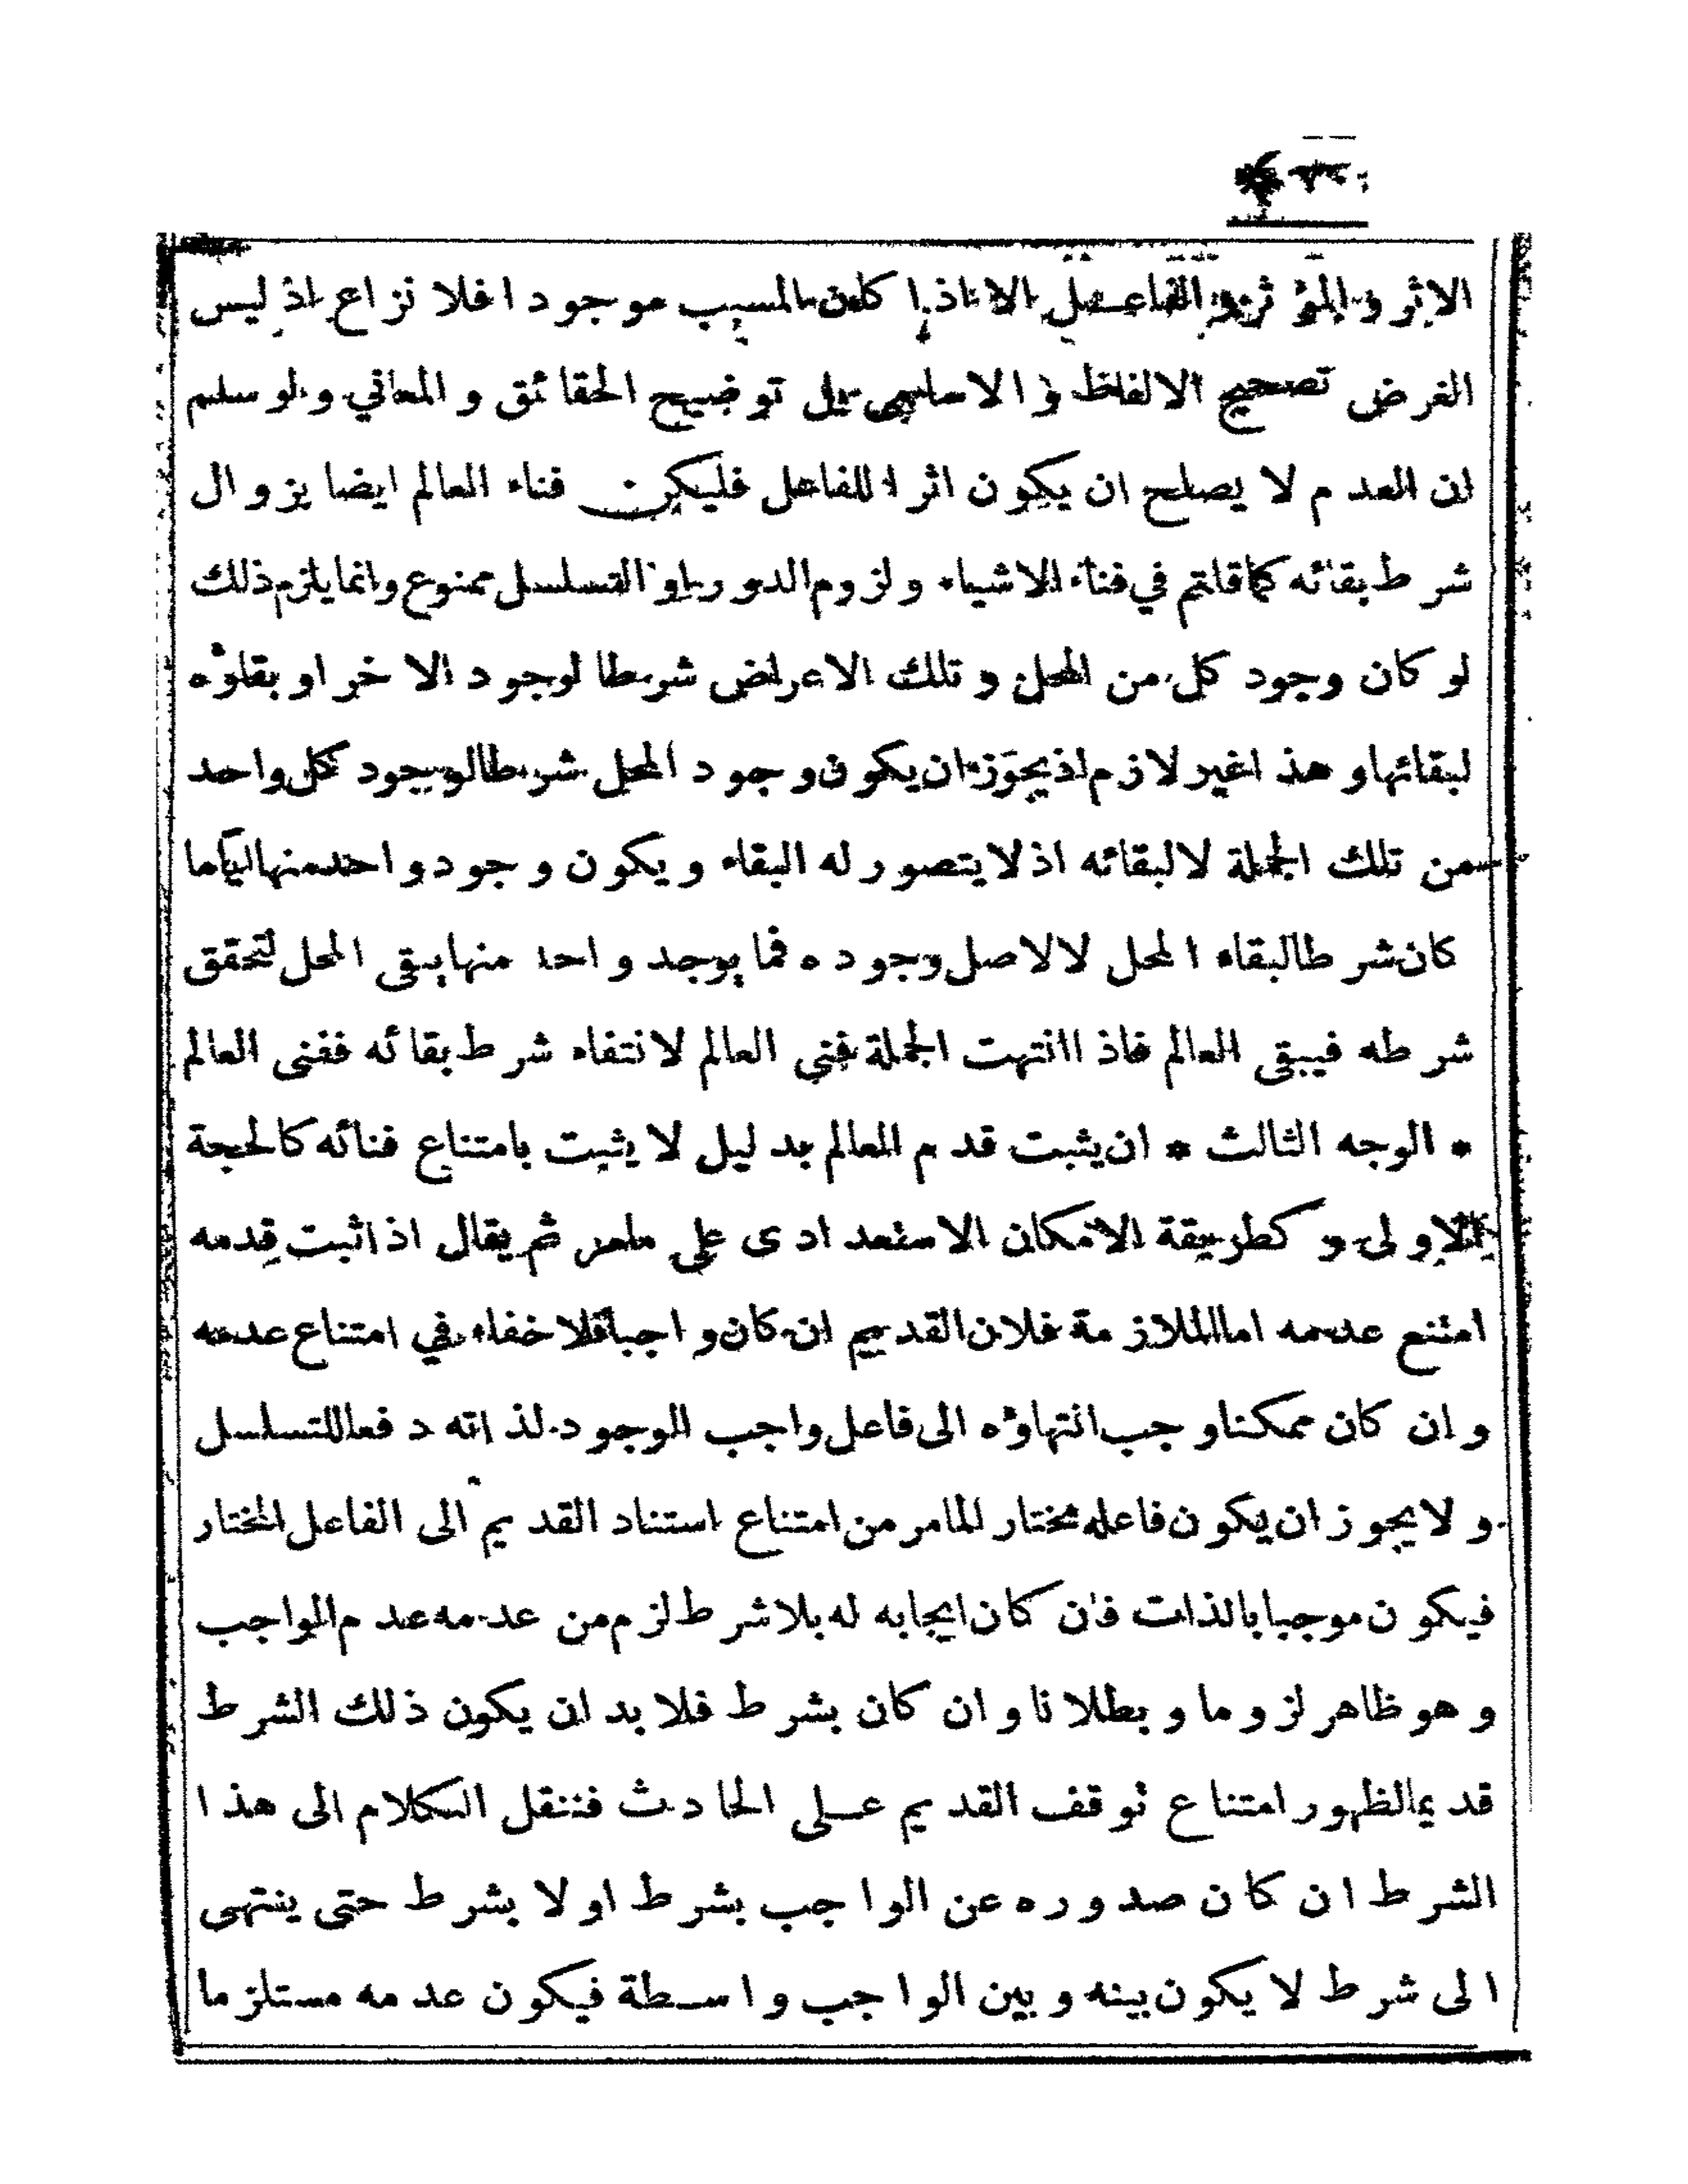 الاثر والمؤثر والفاعل الا اذا كان المسبب موجودا فلا نزاع اذ ليس
الغرض تصحيح الالفاظ و الاسامى بل توضيح الحقائق و المعاني و لو سلم
ان العدم لا يصلح ان يكون اثرا للفاعل فليكن فناء العالم ايضا بزوال
شرط بقائه كما قلتم في فناء الاشياء ولزوم الدور او التسلسل ممنوع وانما يلزم ذلك
لو كان وجود كل من المحل و تلك الاعراض شرطا لوجود الاخر او بقاؤه
لبقائها و هذا غير لازم اذ يجوز ان يكون وجود المحل شرطا لوجود كل واحد
من تلك الجملة لا لبقائه اذ لا يتصور له البقاء و يكون وجود واحد منها اياما
كان شرطا لبقاء المحل لا لاصل وجوده فما يوجد واحد منها يبقى المحل لتحقق
شرطه فيبقى العالم فاذا انتهت الجملة فني العالم لانتفاء شرط بقائه ففنى العالم
* الوجه الثالث * ان يثبت قدم العالم بدليل لا يثبت بامتناع فنائه كالحجة
الاولى و كطريقة الامكان الاستعدادى على مامر ثم يقال اذا ثبت قدمه
امتنع عدمه اما الملازمة فلان القديم ان كان واجبا فلا خفاء في امتناع عدمه
و ان كان ممكنا وجب انتهاؤه الى فاعل واجب الوجود لذاته دفعا للتسلسل
و لا يجوز ان يكون فاعله مختار المامر من امتناع استناد القديم الى الفاعل المختار
فيكون موجبا بالذات فان كان ايجابه له بلا شرط لزم من عدمه عدم الواجب
و هو ظاهر لزوما و بطلانا و ان كان بشرط فلا بد ان يكون ذلك الشرط
قديما لظهور امتناع توقف القديم على الحادث فننقل الكلام الى هذا
الشرط ان كان صدوره عن الواجب بشرط او لا بشرط حتى ينتهى
الى شرط لا يكون بينه و بين الواجب واسطة فيكون عدمه مستلزما